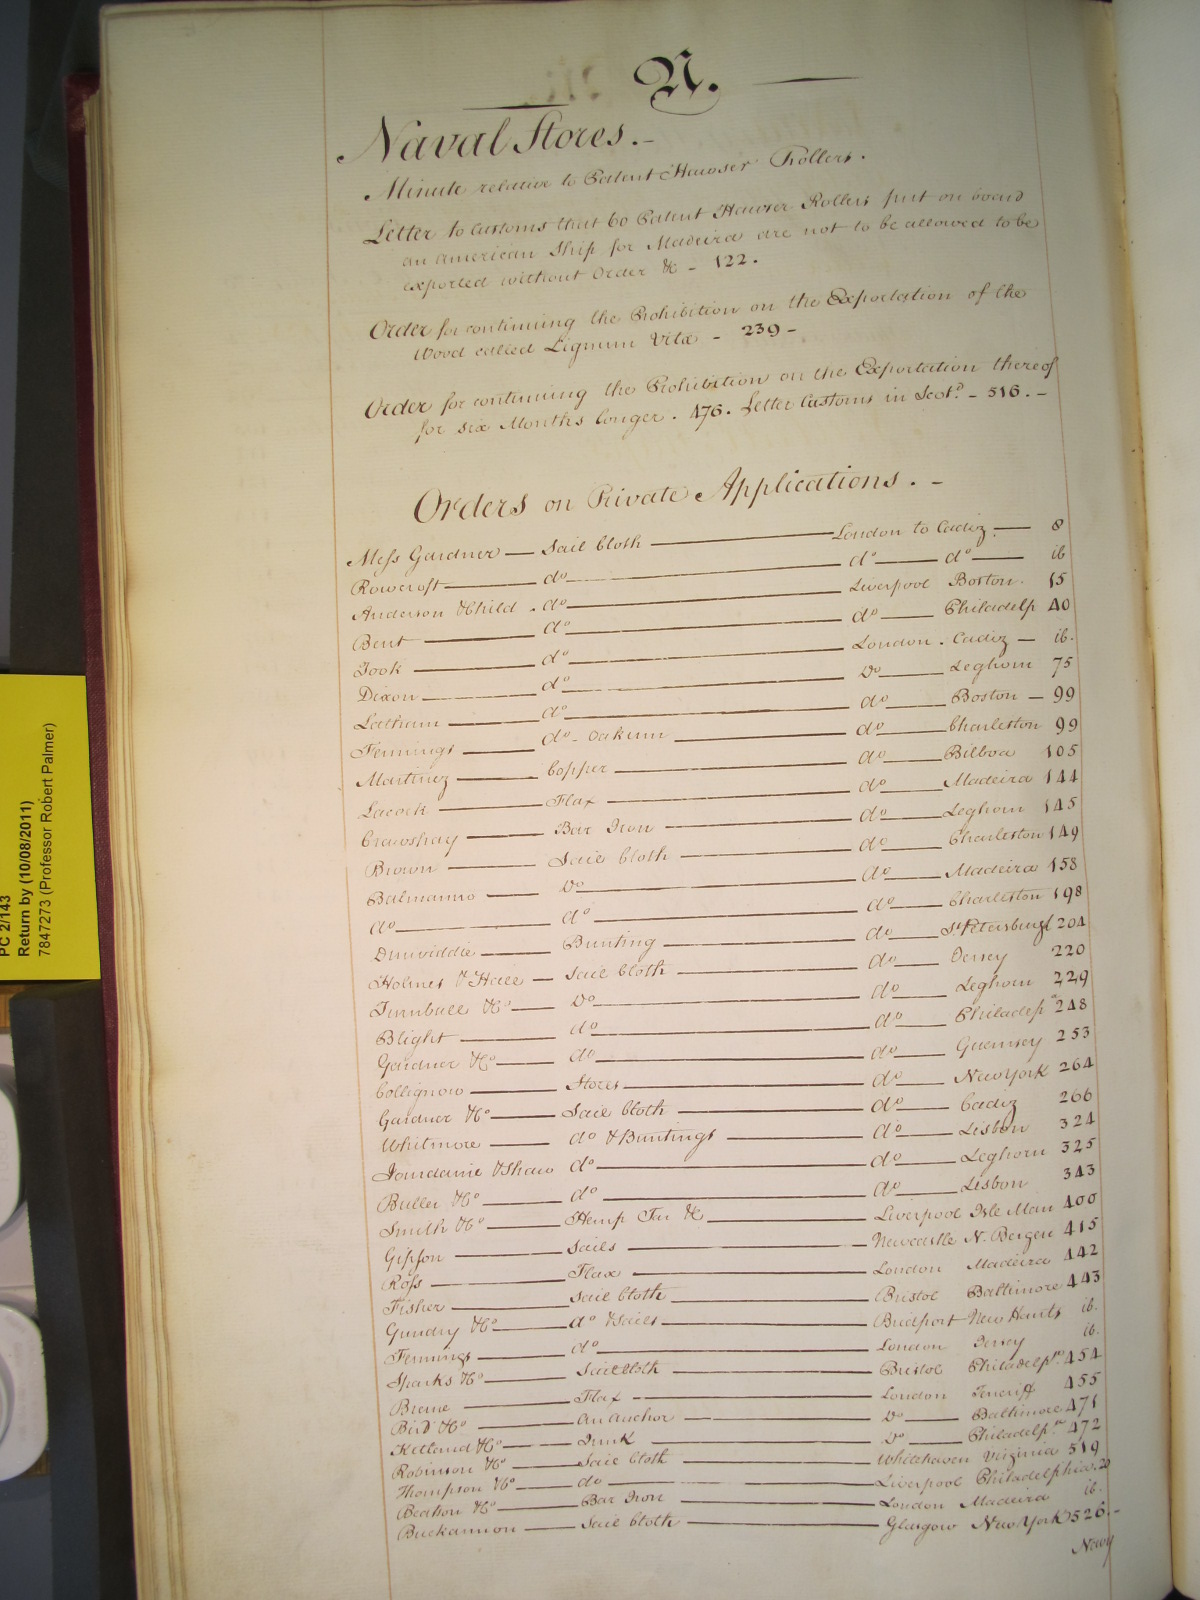 N.
Naval Stores. -
Minute relative to Patent Hawser Rollers.
Letter to Customs that 60 Patent Hawser Rollers put on board
an American Ship for Madeira are not to be allowed to be
exported without Order &c - 122.
Order for continuing the Prohibition on the Exportation of the
Wood called Lignum Vitæ - 239 -
Order for continuing the Prohibition on the Exportation thereof
for six Months longer. 476. Letter Customs in Scotd. - 516. -
Orders on Private Applications. -
Mess Gardner — Sail Cloth — London to Cadiz — 8
Rowcroft — do — do — do — ib
Anderson & Child - do — Liverpool Boston. 15
Bent — do — do — Philadelp 40
Took — do — London. Cadiz — ib.
Dixon — do — Do — Leghorn 75
Latham — do — do — Boston — 99
Fennings — do - Oakum — do — Charleston 99
Martinez — Copper — do — Bilboa 105
Lacock — Flax — do — Madeira 144
Crawshay — Bar Iron — do — Leghorn 145
Brown — Sail Cloth — do — Charleston 149
Balmanno — Do — do — Madeira 158
do — do — do — Charleston 198
Dinwiddie — Bunting — do — St Petersburgh 204
Holmes & Hall — Sail Cloth — do — Jersey 220
Turnbull & Co — Do — do — Leghorn 229
Blight — do — do — Philadelpa 248
Gardner & Co — do — do — Guernsey 253
Collignow — Stores — do — New York 264
Gardner & Co — Sail Cloth — do — Cadiz 266
Whitmore — do & Buntings — do — Lisbon 324
Jourdaine & Shaw do — do — Leghorn 325
Buller & Co — do — do — Lisbon 343
Smith & Co — Hemp Tar &c — Liverpool Isle Man 400
Gipson — Sails — Newcastle N. Bergen 415
Ross — Flax — London Madeira 442
Fisher — Sail Cloth — Bristol Baltimore 443
Gundry & Co — do & Sails — Bridport New Hants ib.
Fennings — do — London Jersey ib.
Sparks & Co — Sailcloth — Bristol Philadelpia 454
Brome — Flax — London Teneriff 455
Bird & Co — An Anchor — Do — Baltimore 471
Ketland & Co — Junk — Do — Philadelpa 472
Robinson & Co — Sail Cloth — Whitehaven Virginia 519
Thompson & Co — do — Liverpool Philadelphia. 20
Beatson & Co — Bar Iron — London Madeira ib.
Buckannon — Sail Cloth — Glasgow New York 526. -
Navy
PC 2/143
Return by (10/08/2011)
7847273 (Professor Robert Palmer)